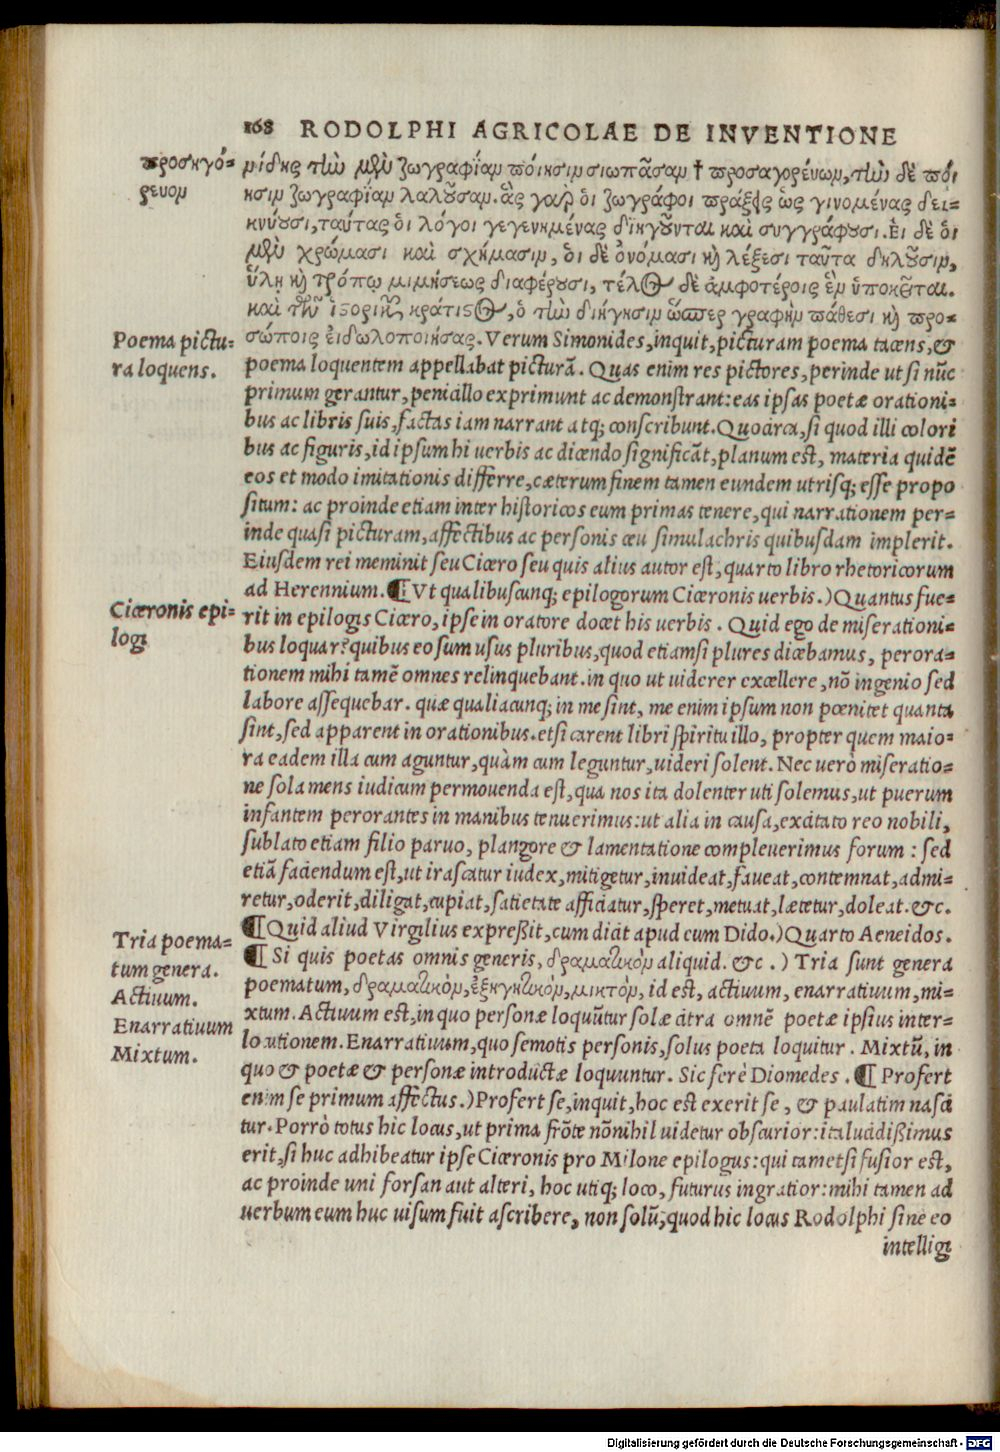 168 RODOLPHI AGRICOLAE DE INVENTIONE
προσηγό=
ρευον
μίδης τὴν μὲν ζωγραφίαν ποίησιν σιωπᾶσαν † προσαγορεύων, τὴν δὲ ποί
ησιν ζωγραφίαν λαλοῦσαν. ἃς γὰρ ὁι ζωγράφοι πράξεις ὡς γινομένας δει=
κνύουσι, ταύτας ὁι λόγοι γεγενημένας διηγοῦνται καὶ συγγράφουσι. Ει δὲ ὁι
μὲν χρώμασι καὶ σχήμασιν, ὁι δὲ ὀνόμασι κὴ λέξεσι ταῦτα δηλοῦσιν,
ὕλῃ κὴ τρόπῳ μιμήσεως διαφέρουσι, τέλος δὲ ἀμφοτέροις ἓν ὑπόκειται.
καὶ τῶν ἱστορικῶν κράτιστος, ὁ τὴν διήγησιν ὥσπερ γραφὴν πάθεσι κὴ προ=
σώποις ἐιδωλοποιήσας. Verum Simonides, inquit, picturam poema tacens, &
Poema pictu-
ra loquens.
poema loquentem appellabat picturã. Quas enim res pictores, perinde ut si nũc
primum gerantur, penicillo exprimunt ac demonstrant: eas ipsas poetæ orationi=
bus ac libris suis, factas iam narrant atq; conscribunt. Quocirca, si quod illi colori
bus ac figuris, id ipsum hi uerbis ac dicendo significãt, planum est, materia quidẽ
eos et modo imitationis differre, cæterum finem tamen eundem utrisq; esse propo
situm: ac proinde etiam inter historicos eum primas tenere, qui narrationem per=
inde quasi picturam, affectibus ac personis ceu simulachris quibusdam implerit.
Eiusdem rei meminit seu Cicero seu quis alius autor est, quarto libro rhetoricorum
ad Herennium. ¶ Vt qualibuscunq; epilogorum Ciceronis uerbis.) Quantus fue=
Ciceronis epi=
logi
rit in epilogis Cicero, ipse in oratore docet his uerbis. Quid ego de miserationi=
bus loquar? quibus eo sum usus pluribus, quod etiamsi plures dicebamus, perora=
tionem mihi tamẽ omnes relinquebant. in quo ut uiderer excellere, nõ ingenio sed
labore assequebar. quæ qualiacunq; in me sint, me enim ipsum non pœnitet quanta
sint, sed apparent in orationibus. etsi carent libri spiritu illo, propter quem maio=
ra eadem illa cum aguntur, quàm cum leguntur, uideri solent. Nec uerò miseratio=
ne sola mens iudicum permouenda est, qua nos ita dolenter uti solemus, ut puerum
infantem perorantes in manibus tenuerimus: ut alia in causa, excitato reo nobili,
sublato etiam filio paruo, plangore & lamentatione compleuerimus forum: sed
etiã faciendum est, ut irascatur iudex, mitigetur, inuideat, faueat, contemnat, admi=
retur, oderit, diligat, cupiat, satietate afficiatur, speret, metuat, lætetur, doleat. &c.
¶ Quid aliud Virgilius expreßit, cum dicit apud eum Dido.) Quarto Aeneidos.
Tria poema=
tum genera.
Actiuum.
Enarratiuum
Mixtum.
¶ Si quis poetas omnis generis, δραματικὸν aliquid. &c.) Tria sunt genera
poematum, δραματικὸν, ἐξηγητικὸν, μικτὸν, id est, actiuum, enarratiuum, mi=
xtum. Actiuum est, in quo personæ loquũtur solæ citra omnẽ poetæ ipsius inter=
locutionem. Enarratiuum, quo semotis personis, solus poeta loquitur. Mixtũ, in
quo & poetæ & personæ introductæ loquuntur. Sic ferè Diomedes. ¶ Profert
enim se primum affectus.) Profert se, inquit, hoc est exerit se, & paulatim nasci
tur. Porrò totus hic locus, ut prima frõte nõnihil uidetur obscurior: ita lucidißimus
erit, si huc adhibeatur ipse Ciceronis pro Milone epilogus: qui tametsi fusior est,
ac proinde uni forsan aut alteri, hoc utiq; loco, futurus ingratior: mihi tamen ad
uerbum eum huc uisum fuit ascribere, non solũ, quod hic locus Rodolphi sine eo
intelligi
Digitalisierung gefördert durch die Deutsche Forschungsgemeinschaft - DFG